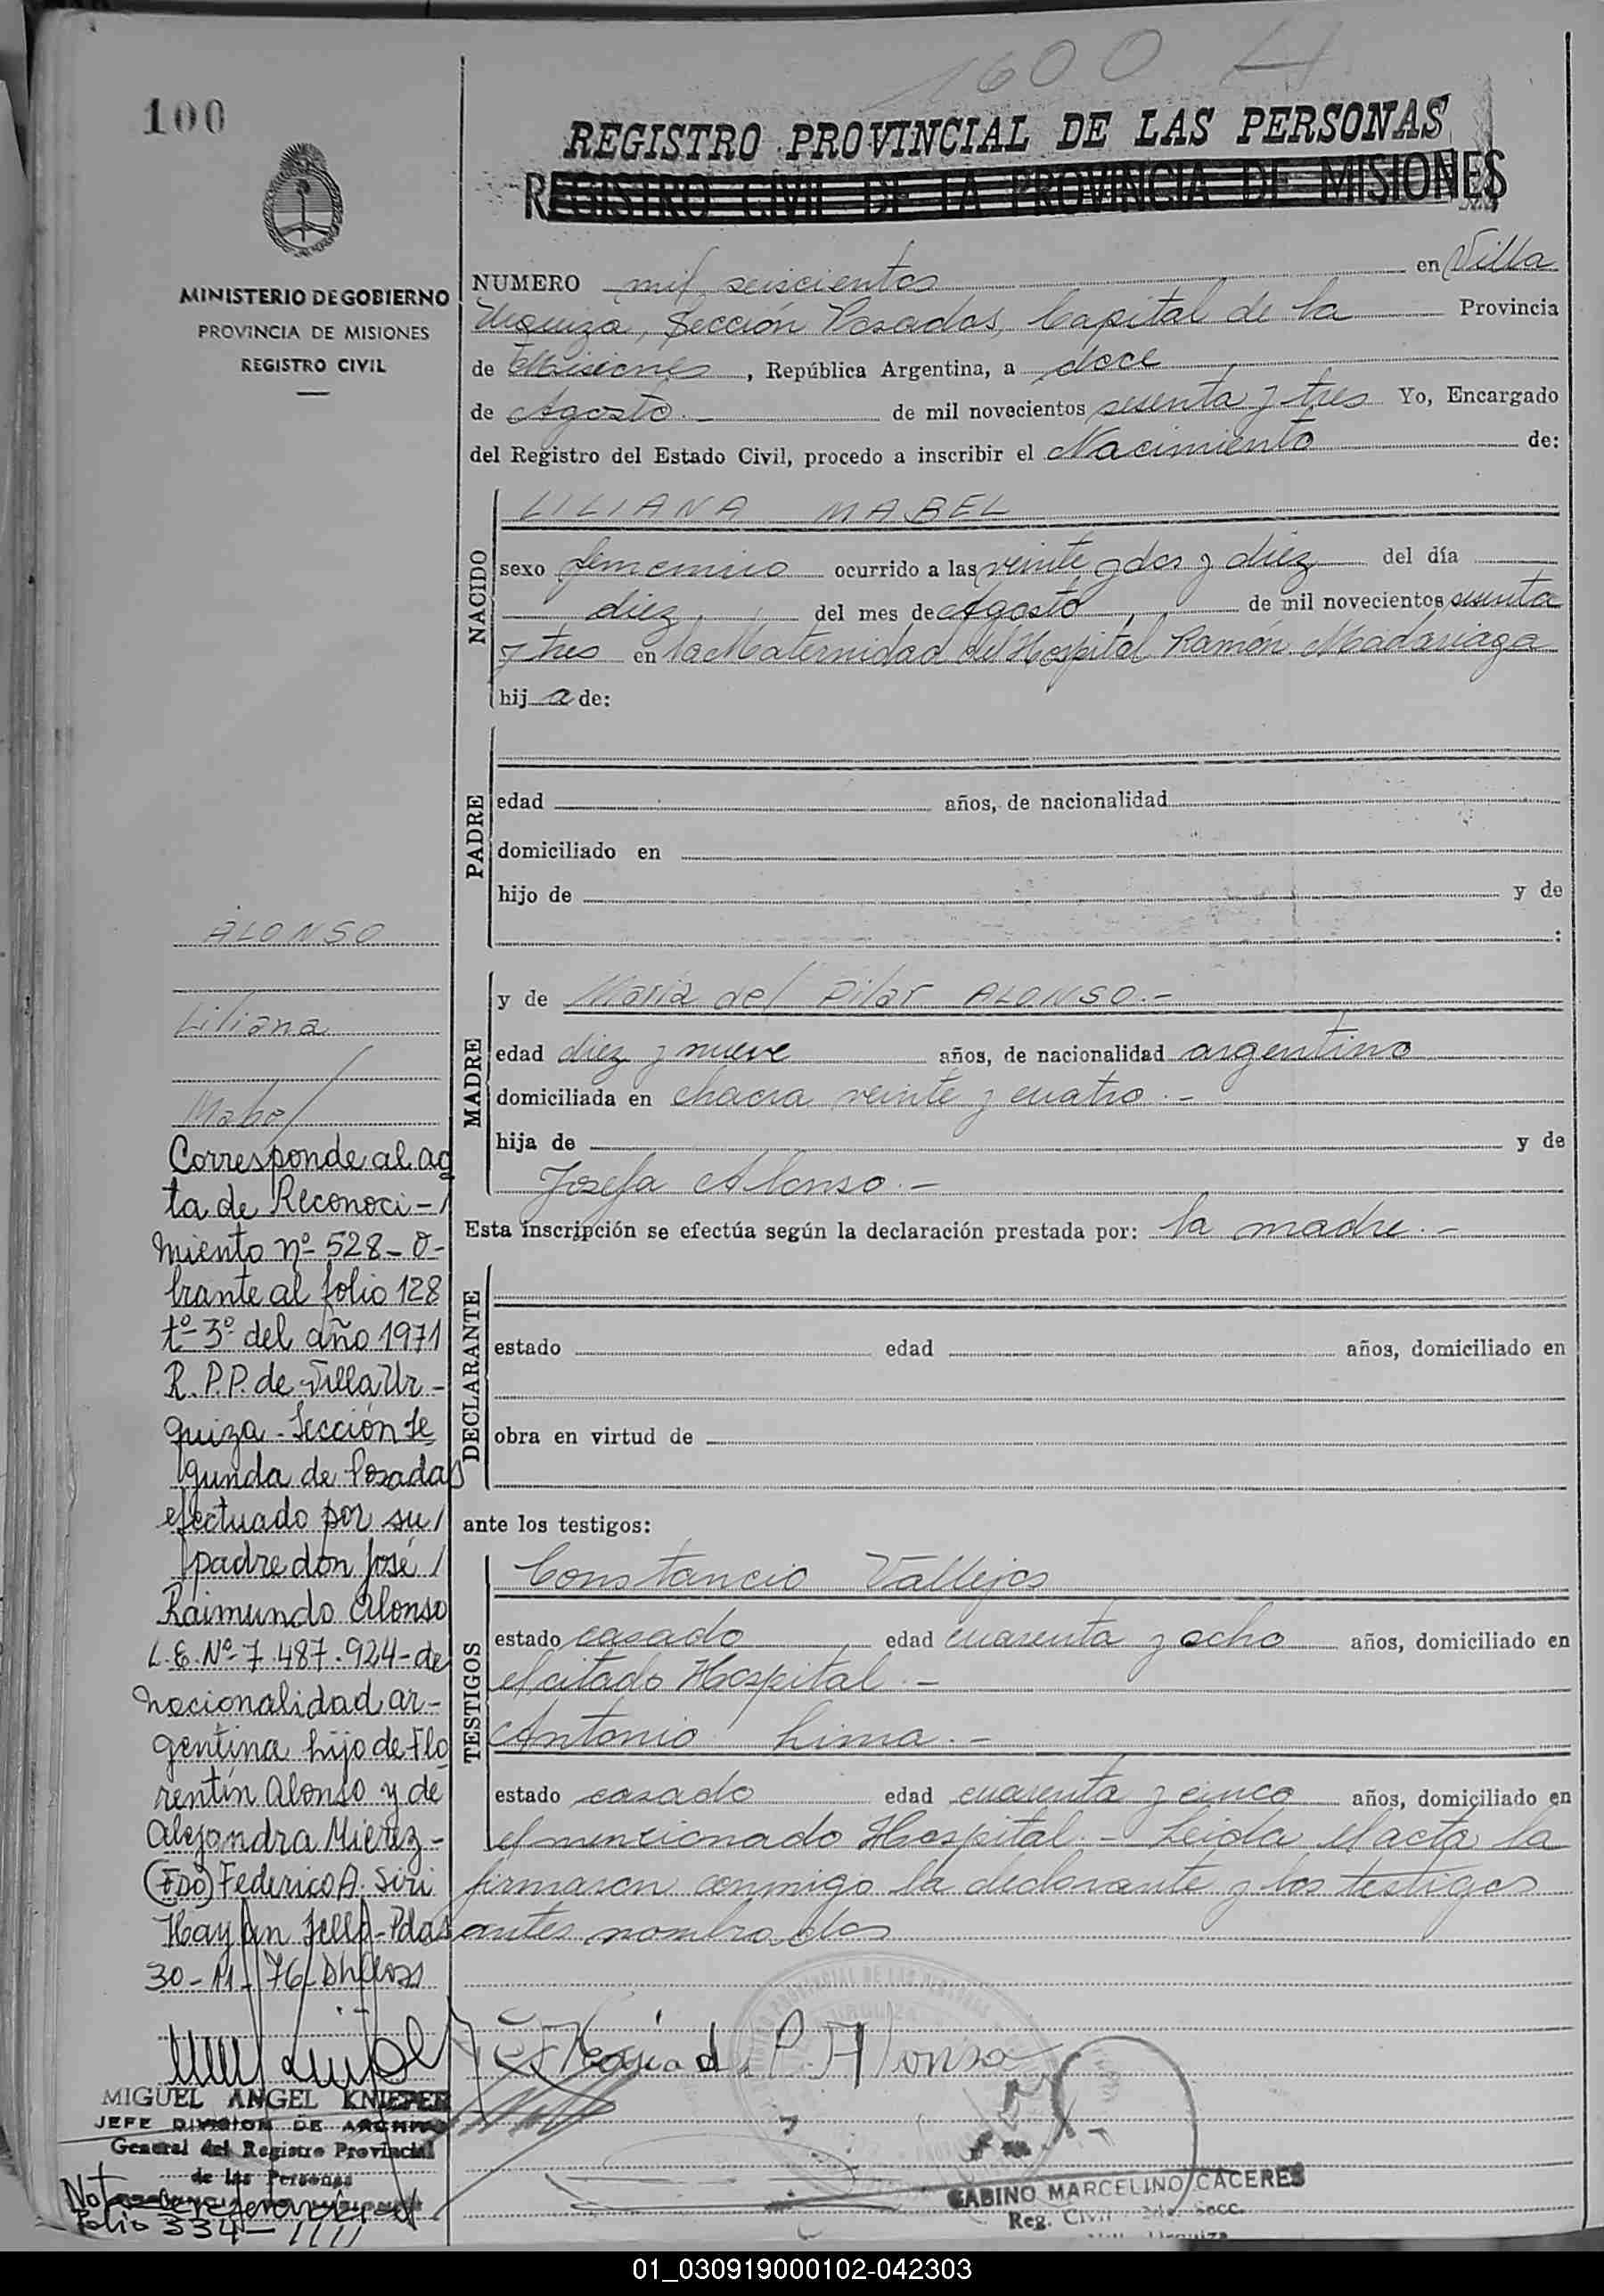 1600
100
REGISTRO PROVINCIAL DE LAS PERSONAS
REGISTRO CIVIL DE LA PROVINCIA DE MISIONES
MINISTERIO DE GOBIERNO
PROVINCIA DE MISIONES
REGISTRO CIVIL
NUMERO mil seiscientos en Villa
Urquiza, Sección Posadas, Capital de la Provincia
de Misiones, República Argentina, a doce
de Agosto.- de mil novecientos sesenta y tres Yo, Encargado
del Registro del Estado Civil, procedo a inscribir el Nacimiento de:
NACIDO
LILIANA MABEL
sexo femenino ocurrido a las veinte y dos y diez del día
diez del mes de Agosto, de mil novecientos sesenta
y tres en la Maternidad del Hospital Ramón Madariaga
hija de:
PADRE
edad años, de nacionalidad
domiciliado en
hijo de y de
:
MADRE
y de Maria del Pilar ALONSO.-
edad diez y nueve años, de nacionalidad argentina
domiciliada en chacra veinte y cuatro.-
hija de y de
Josefa Alonso.-
Esta inscripción se efectúa según la declaración prestada por: la madre.-
DECLARANTE
estado edad años, domiciliado en
obra en virtud de
ante los testigos:
TESTIGOS
Constancio Vallejos
estado casado edad cuarenta y ocho años, domiciliado en
el citado Hospital.-
Antonio Lima.-
estado casado edad cuarenta y cinco años, domiciliado en
el mencionado Hospital.- Leida el acta la
firmaron conmigo la declarante y los testigos
antes nombrados
ALONSO
Liliana
Mabel
Corresponde al ac
ta de Reconoci-/
miento nº 528-O-
brante al folio 128
tº 3º del año 1971
R.P.P. de Villa Ur-
quiza-Sección Se
gunda de Posadas
efectuado por su/
padre don José/
Raimundo Alonso
L.E. Nº 7.487.924-de
nacionalidad ar-
gentina hijo de Flo
rentín Alonso y de
Alejandra Mieréz-
(FDO) Federico A. Siri
Hay un Sello-Pdas
30-11-76
MIGUEL ANGEL KNIEPER
JEFE DIVISION DE ARCHIVO
General del Registro Provincial
de las Personas
Nota
Folio 334-////
Maria d P. Alonso
GABINO MARCELINO CACERES
Reg. Civil 2da. Secc.
Villa Urquiza
01_030919000102-042303